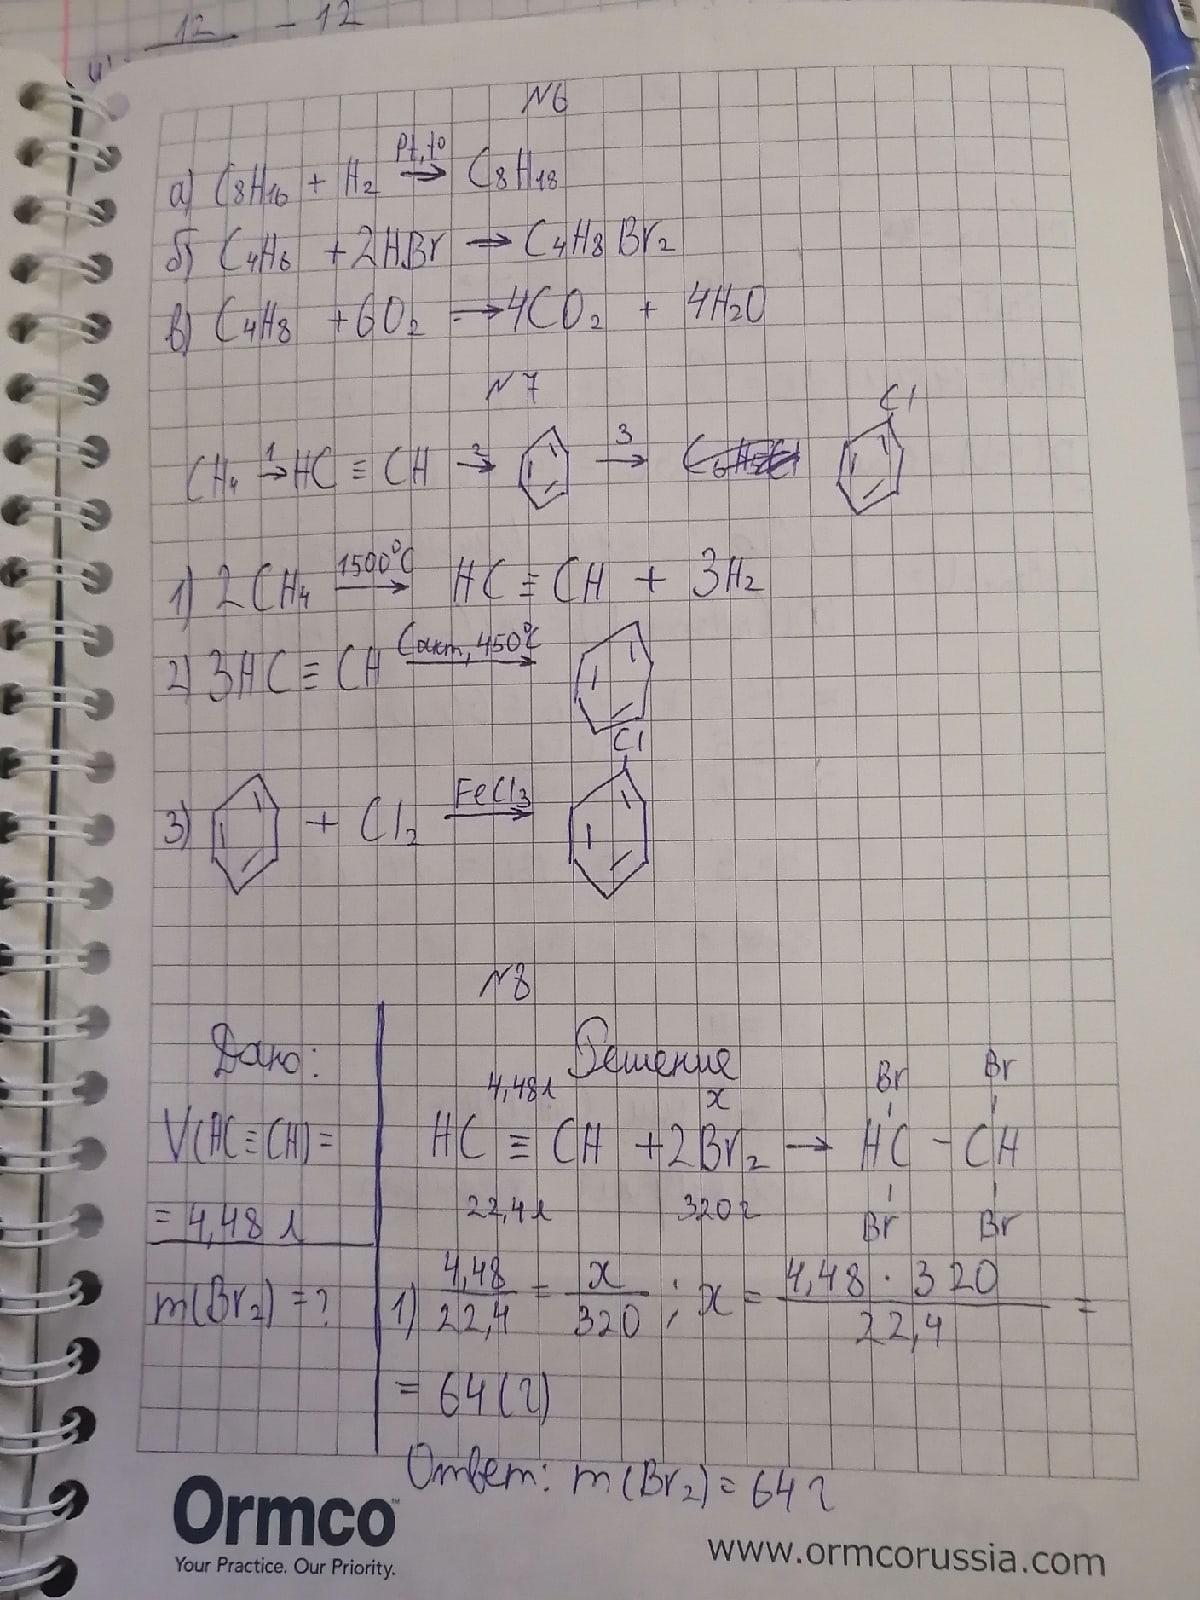 12 - 12
N6
а) C8H16 + H2 Pt, t° → C8H18
б) C4H6 + 2HBr → C4H8Br2
в) C4H8 + 6O2 → 4CO2 + 4H2O
N7
Cl
CH4 1→ HC ≡ CH 2→ 3→
1) 2CH4 1500°C → HC ≡ CH + 3H2
2) 3HC ≡ CH Cакт, 450°C →
Cl
3) + Cl2 FeCl3 →
N8
Дано: Решение
4,48л x Br Br
V(HC≡CH) = HC ≡ CH + 2Br2 → HC - CH
= 4,48 л 22,4л 320г Br Br
m(Br2) = ? 1) 4,48/22,4 = x/320 ; x = 4,48 · 320/22,4 =
= 64 (г)
Ответ: m(Br2) = 64 г
Ormco™
Your Practice. Our Priority.
www.ormcorussia.com